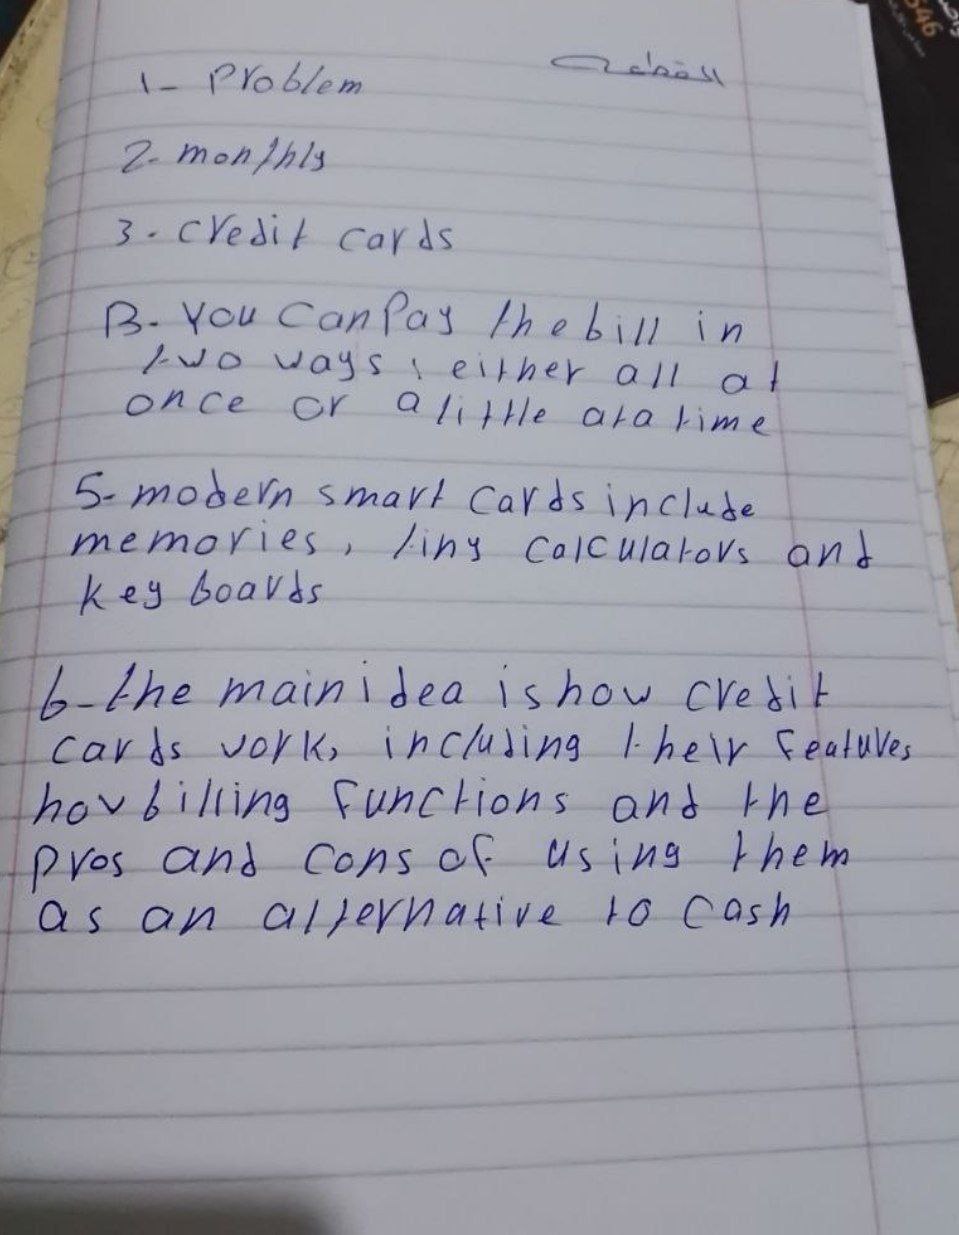 القطعة
1- Problem
2- monthly
3. credit cards
B. You can Pay the bill in
two ways, either all at
once or a little at a time
5- modern smart cards include
memories, tiny calculators and
key boards
6- the main idea is how credit
cards work, including their features,
how billing functions and the
pros and cons of using them
as an alternative to cash
546